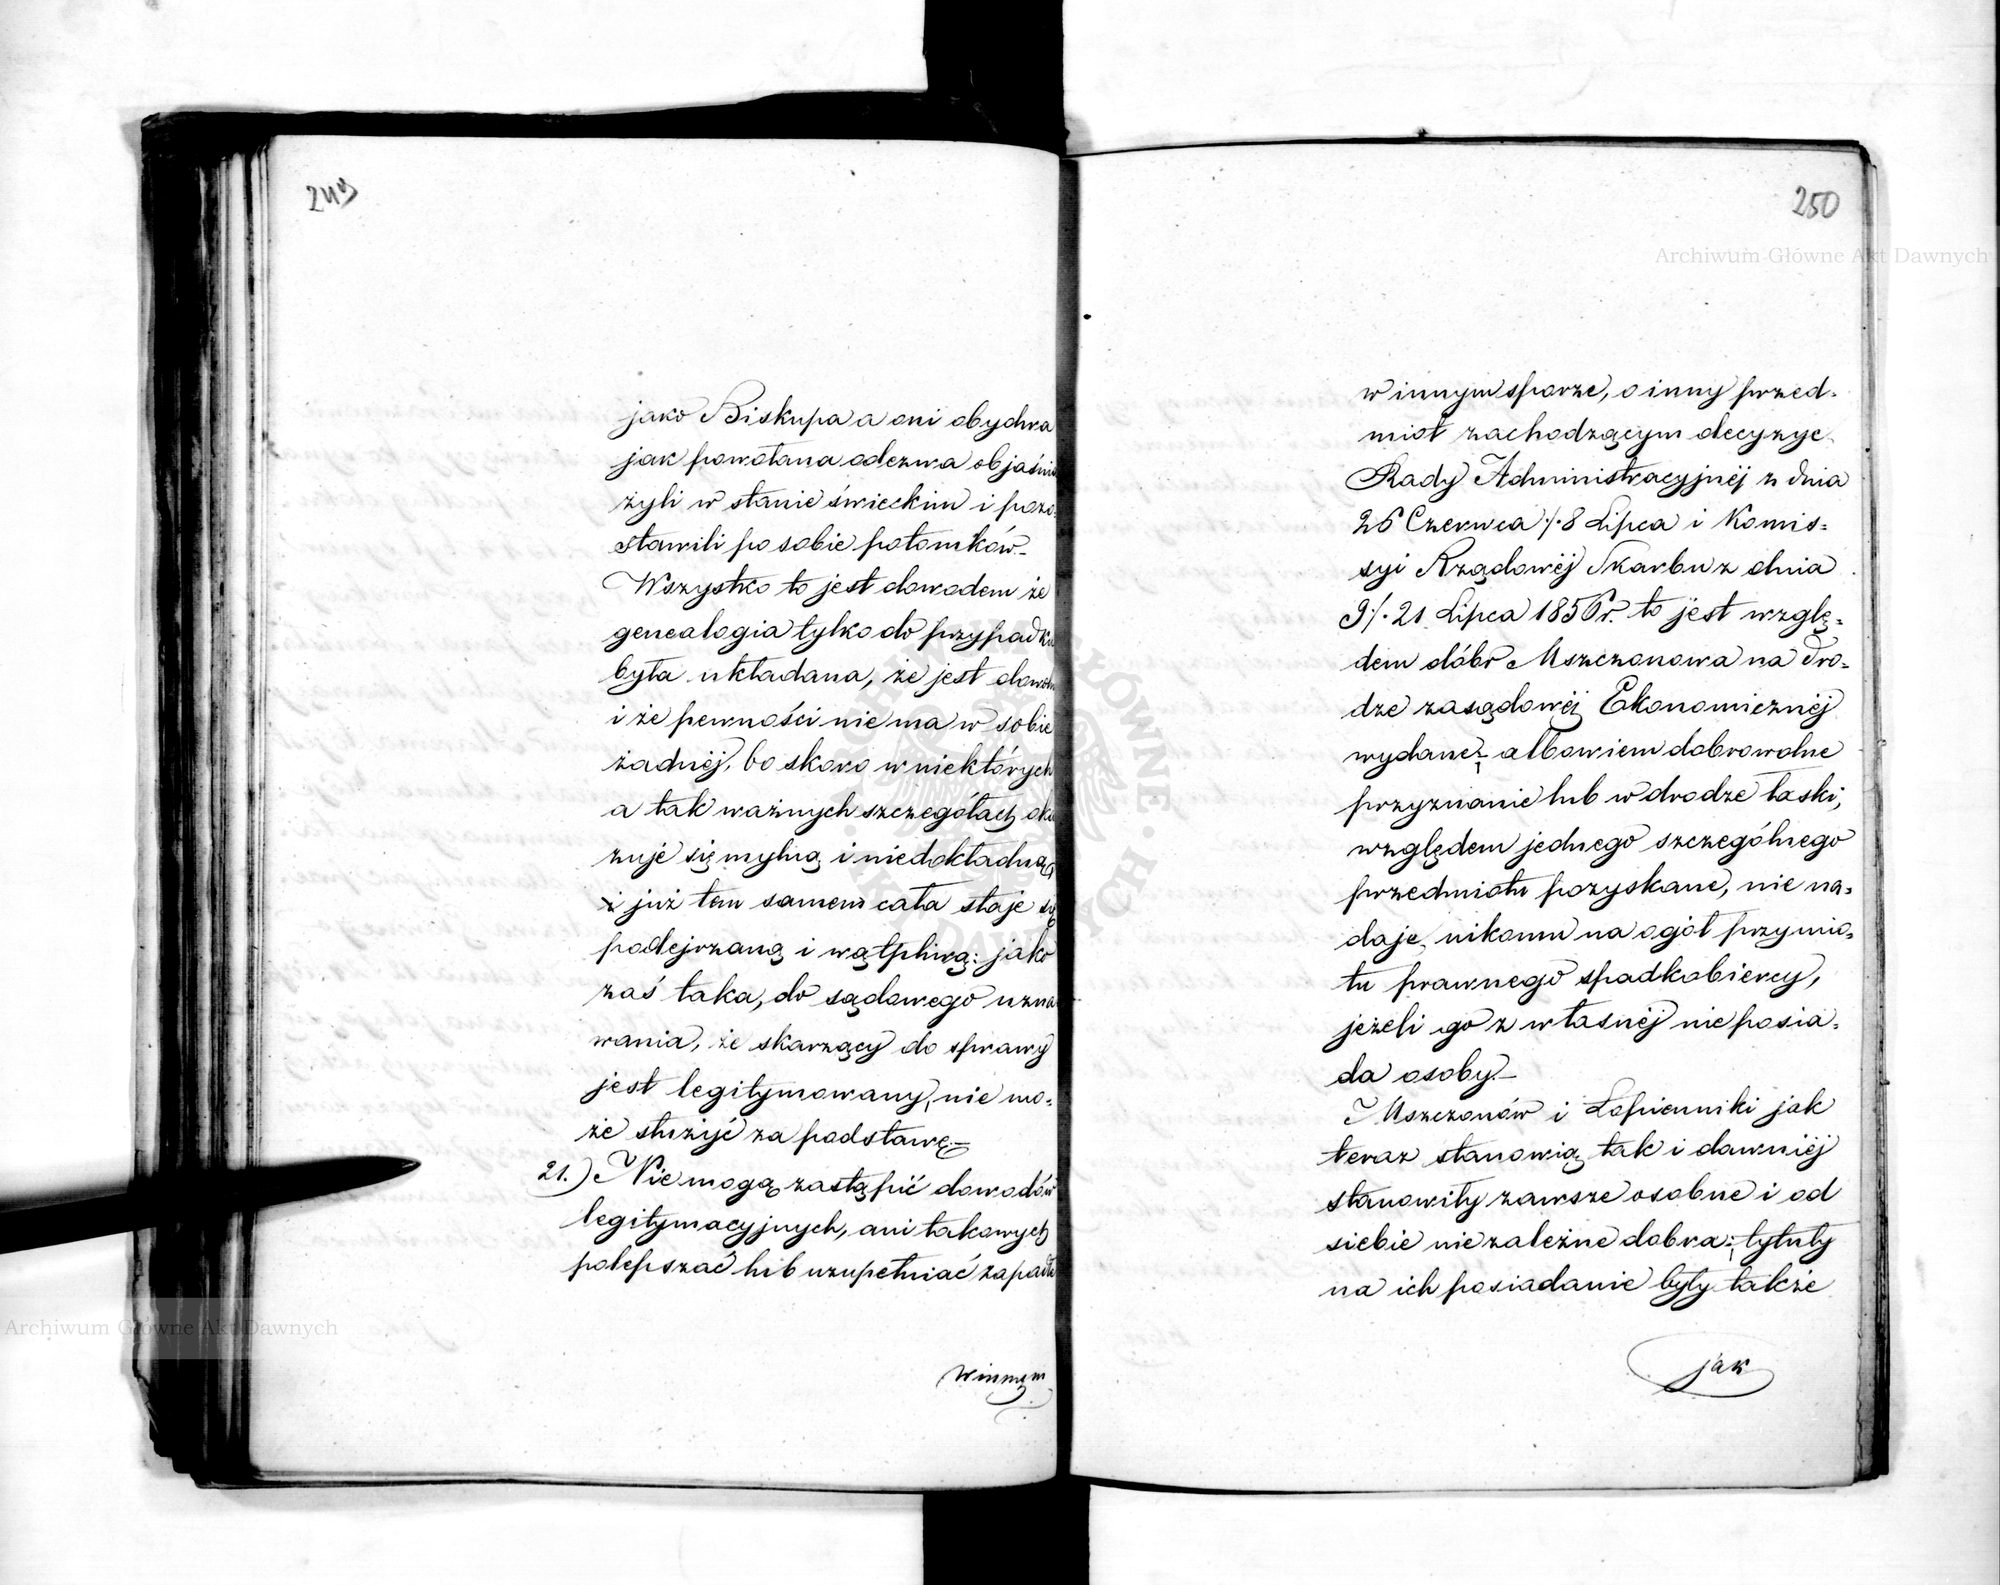 249
jako Biskupa a oni obydwa
jak powołana odezwa objaśnia
żyli w stanie świeckim i pozo-
stawili po sobie potomków.-
Wszystko to jest dowodem że
genealogia tylko do przypadku
była układana, że jest dowolną
i że pewności nie ma w sobie
żadnéj, bo skoro w niektórych
a tak ważnych szczegółach oka
zuje się mylną i niedokładną,
i już tem samem cała staje się
podejrzaną i wątpliwą: jako
zaś taka, do sądowego uzna
wania, że skarżący do sprawy
jest legitymowany, nie mo-
że służyć za podstawę.-
21.) Nie mogą zastąpić dowodów
legitymacyjnych, ani takowych
polepszać lub uzupełniać zapadłe
w innym
250
Archiwum Główne Akt Dawnych
w innym sporze, o inny przed-
miot zachodzącym decyzye
Rady Administracyjnéj z dnia
26 Czerwca ./. 8 Lipca i Komis-
syi Rządowéj Skarbu z dnia
9 ./. 21 Lipca 1856 r. to jest wzglę-
dem dóbr Mszczonowa na dro-
dze zasądowéj Ekonomicznéj
wydane; albowiem dobrowolne
przyznanie lub w drodze łaski,
względem jednego szczególnego
przedmiotu pozyskane, nie na-
daje nikomu na ogół przymio-
tu prawnego spadkobiercy,
jeżeli go z własnéj nie posia-
da osoby.-
Mszczonów i Łopienniki jak
teraz stanowią tak i dawniéj
stanowiły zawsze osobne i od
siebie niezależne dobra; tytuły
na ich posiadanie były także
jak
Archiwum Główne Akt Dawnych